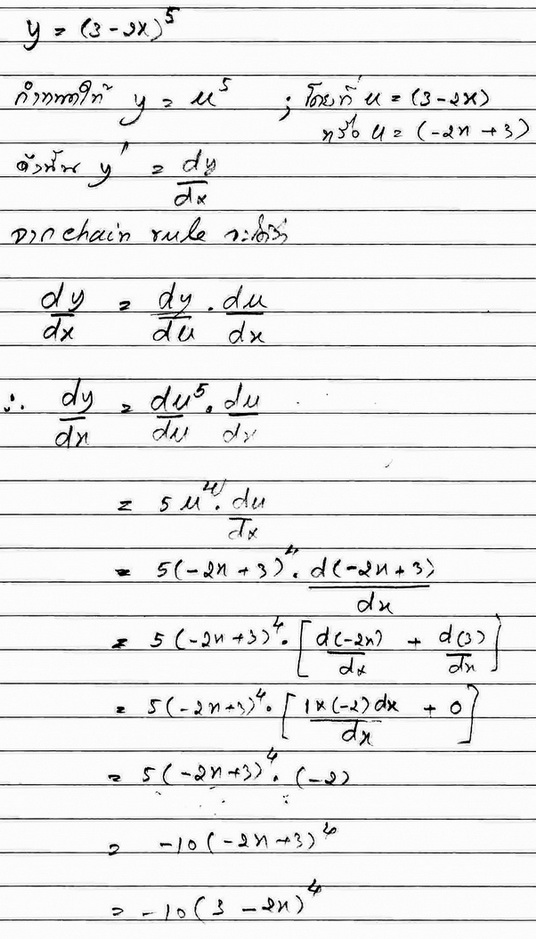 y = (3-2x)⁵
กำหนดให้ y = u⁵ ; โดยที่ u = (3-2x)
หรือ u = (-2x+3)
ดังนั้น y' = dy/dx
จาก chain rule จะได้ว่า
dy/dx = dy/du · du/dx
∴ dy/dx = du⁵/du · du/dx
= 5u⁴ · du/dx
= 5(-2x+3)⁴ · d(-2x+3)/dx
= 5(-2x+3)⁴ · [d(-2x)/dx + d(3)/dx]
= 5(-2x+3)⁴ · [1x(-2)dx/dx + 0]
= 5(-2x+3)⁴ · (-2)
= -10(-2x+3)⁴
= -10(3-2x)⁴